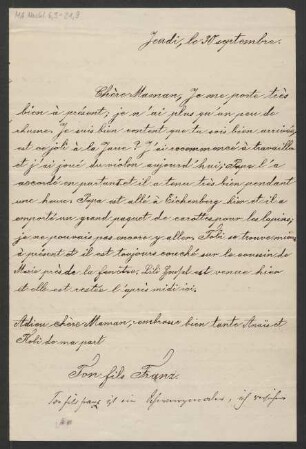 Jeudi, le 30 septembre.
Chère Maman, Je me porte très
bien à présent; je n'ai plus qu'un peu de
rhume. Je suis bien content que tu sois bien arrivée,
est ce joli à la Tour? J'ai commencé à travailler
et j'ai joué du violon aujourd'hui; Papa l'a
accordé en partant et il a tenu très bien pendant
une heure. Papa est allé à Eichenberg hier et il a
emporté un grand paquet de carottes pour les lapins,
je ne pouvais pas encore y aller. Fidi se trouve mieux
à présent et il est toujours couché sur le coussin de
près de la fenêtre. Lili est venue hier
et elle est restée l'après midi ici.
Adieu chère Maman, embrasse bien tante Anaïs et
de ma part
Ton fils Franz.
Ton fils franz ist ein , ich